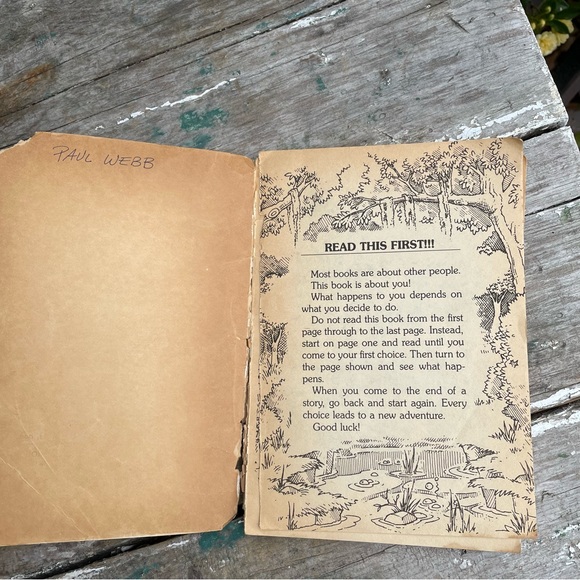 PAUL WEBB
READ THIS FIRST!!!
Most books are about other people.
This book is about you!
What happens to you depends on
what you decide to do.
Do not read this book from the first
page through to the last page. Instead,
start on page one and read until you
come to your first choice. Then turn to
the page shown and see what hap-
pens.
When you come to the end of a
story, go back and start again. Every
choice leads to a new adventure.
Good luck!